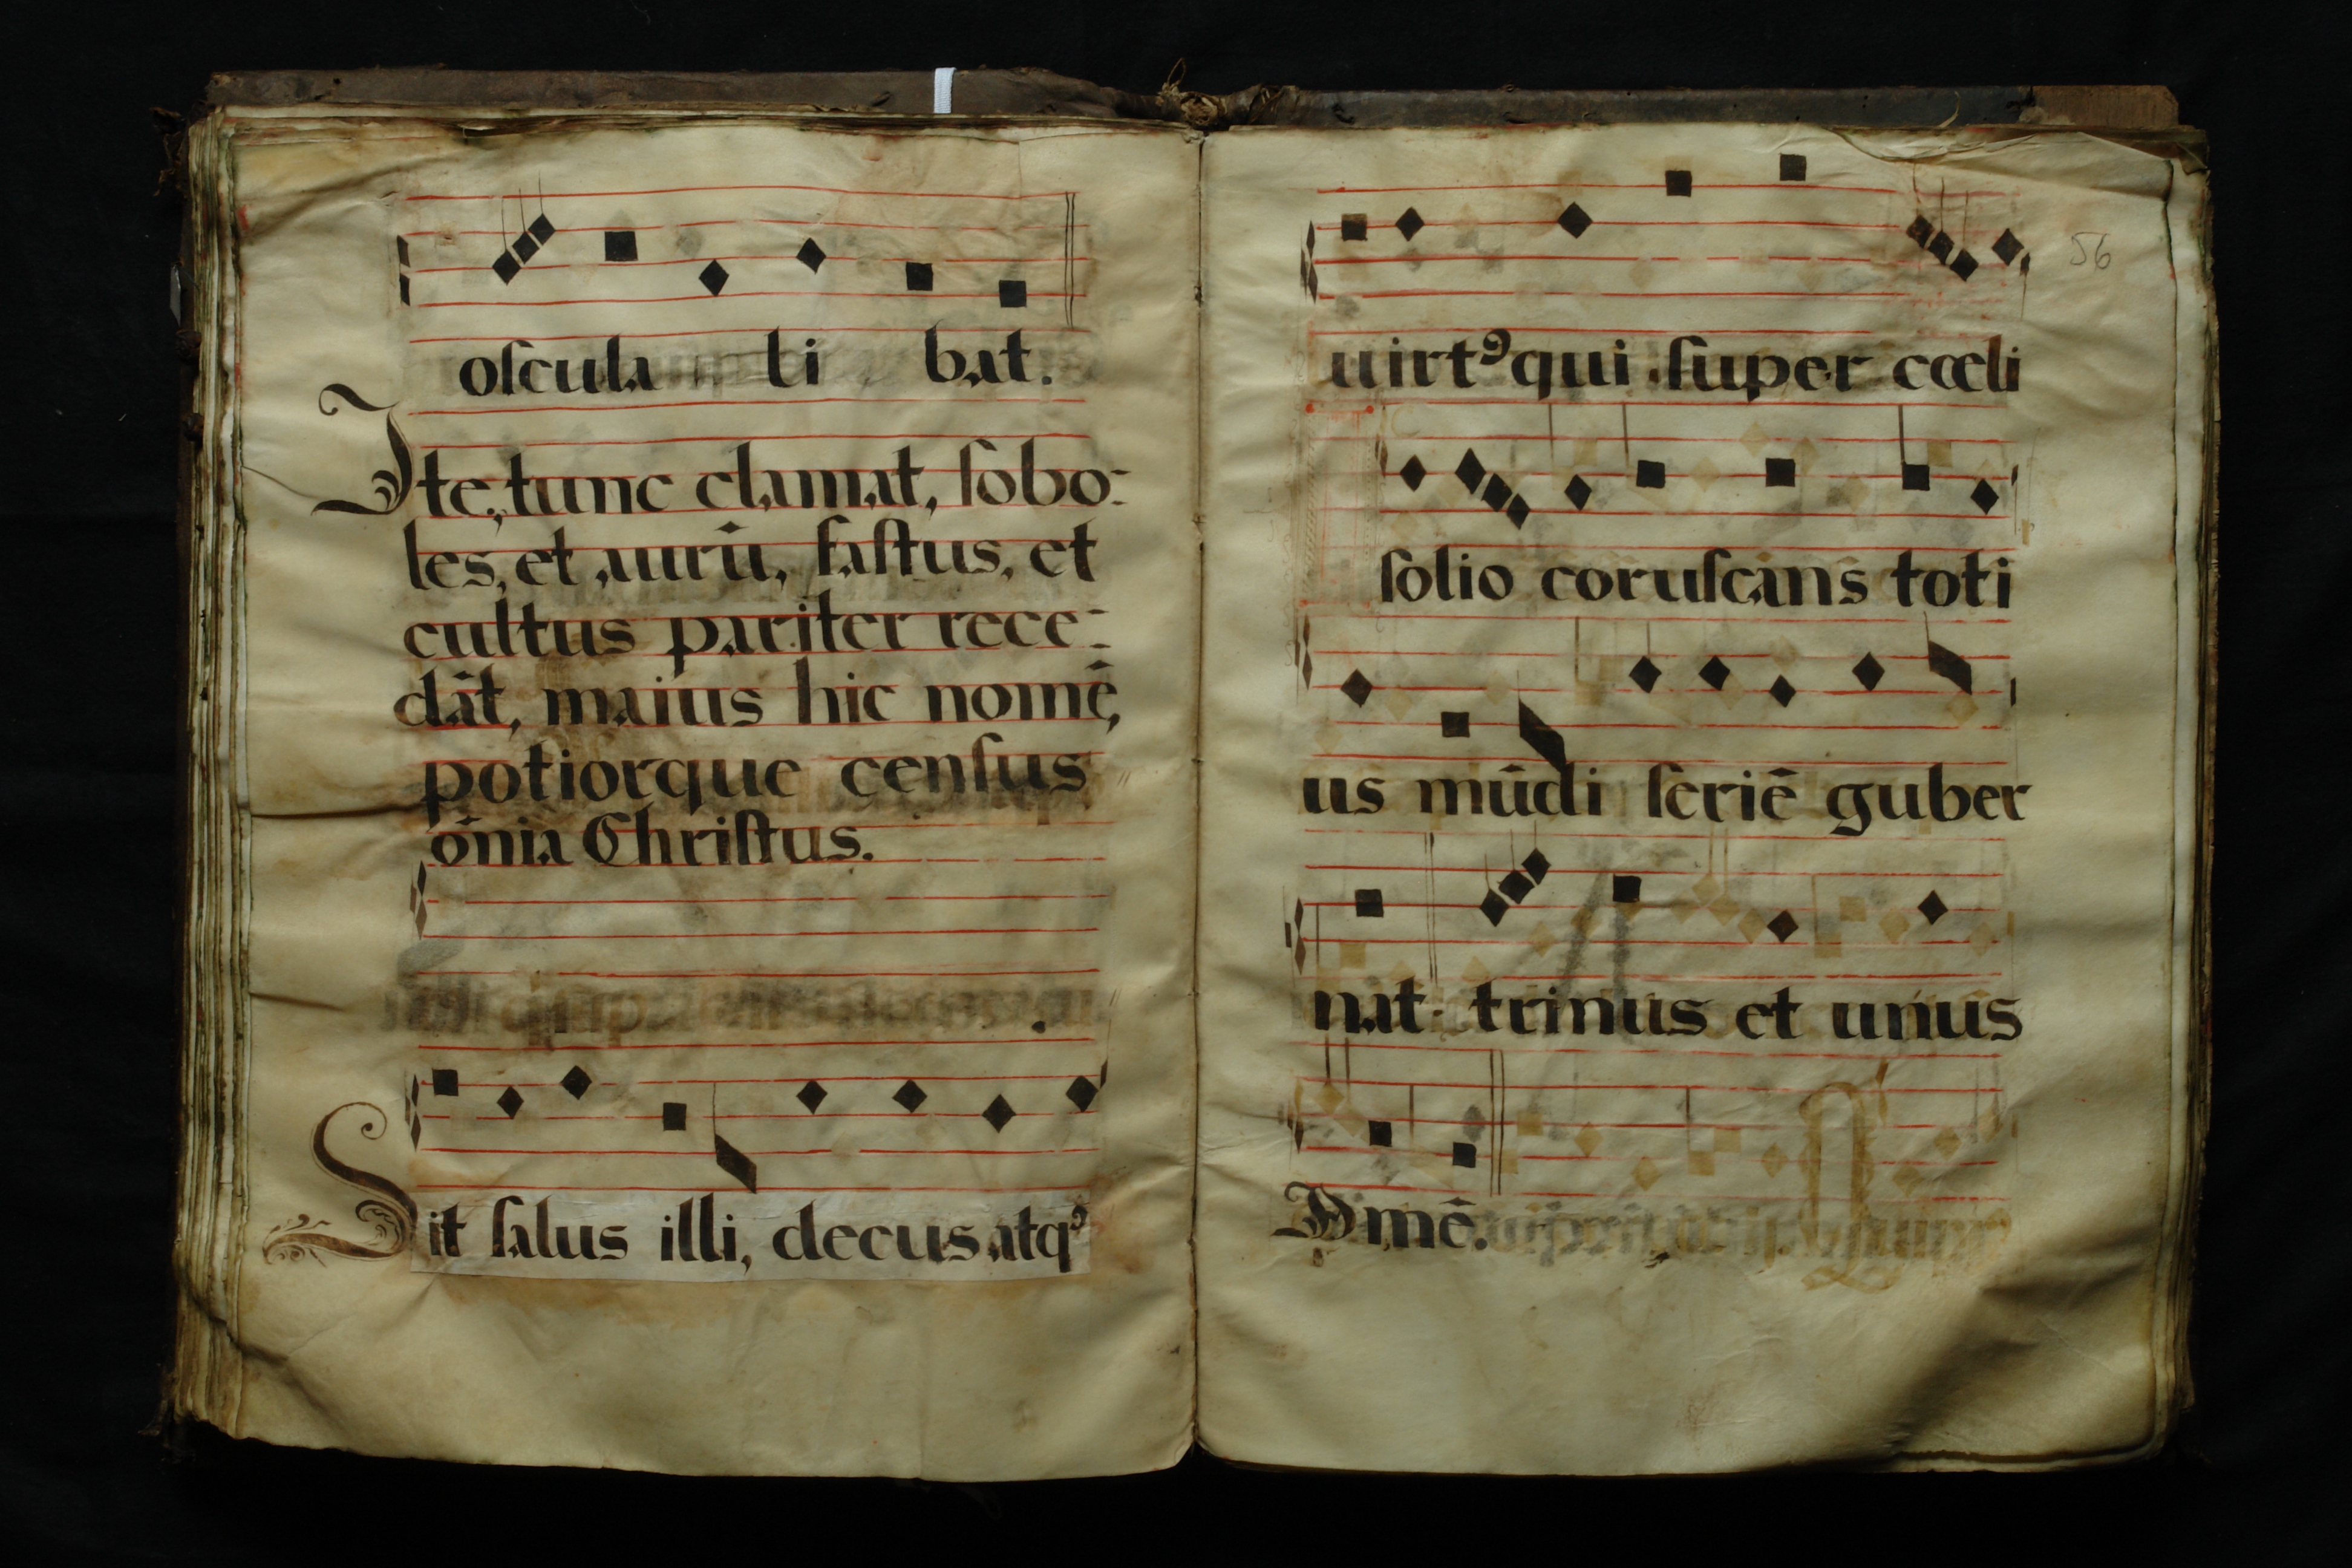 oſcula ti bat.
Ite, tunc clamat, ſobo-
les, et aurū, faſtus, et
cultus pariter rece-
dāt, maius hic nomē,
potiorque cenſus
ōnia Chriſtus.
Sit ſalus illi, decus atqꝫ
56
uirtꝰ qui ſuper cœli
ſolio coruſcans toti
us mūdi ſeriē guber
nat trinus et unus
Amē.